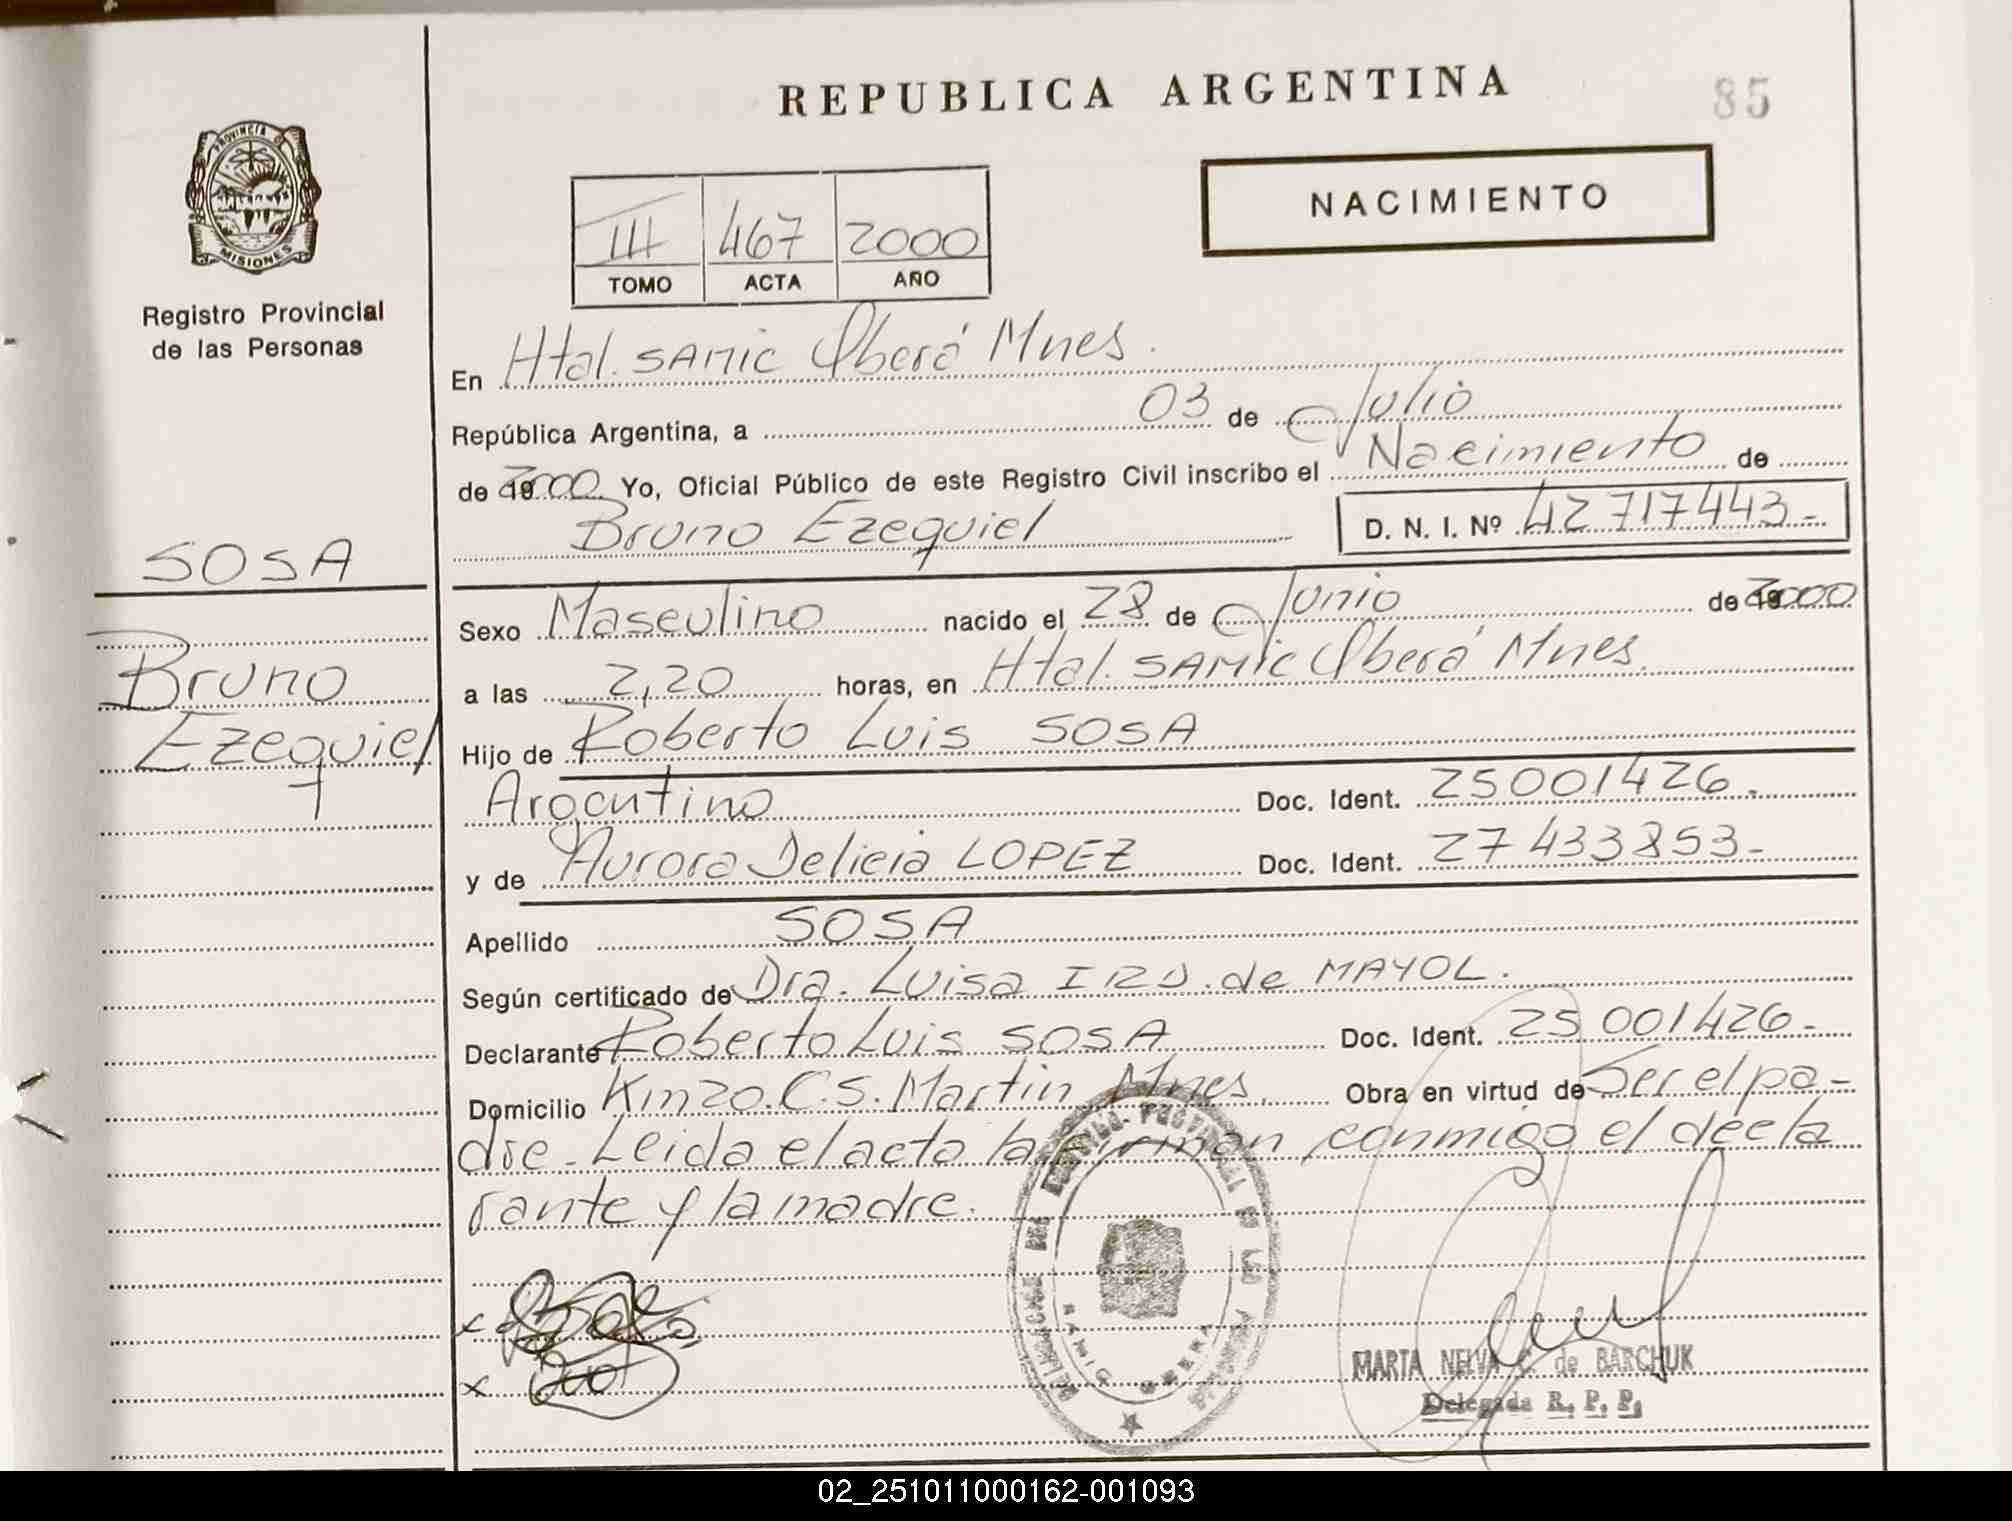 REPUBLICA ARGENTINA
85
PROVINCIA
MISIONES
Registro Provincial
de las Personas
NACIMIENTO
III 467 2000
TOMO ACTA AÑO
En Htal. SAMIC Oberá Mnes.
República Argentina, a 03 de Julio
de 2000 Yo, Oficial Público de este Registro Civil inscribo el Nacimiento de
Bruno Ezequiel D. N. I. Nº 42 717 443-
SOSA
Bruno
Ezequiel
Sexo Masculino nacido el 28 de Junio de 2000
a las 2,20 horas, en Htal. SAMIC Oberá Mnes.
Hijo de Roberto Luis SOSA
Argentino Doc. Ident. 25001426.
y de Aurora Delicia LOPEZ Doc. Ident. 27 433853-
Apellido SOSA
Según certificado de Dra. Luisa de MAYOL.
Declarante Roberto Luis SOSA Doc. Ident. 25 001426-
Domicilio Km20. C.S. Martin Mnes. Obra en virtud de Ser el pa-
dre. Leida el acta la firman conmigo el decla
rante y la madre.
x
x
MARTA NELVA C. de BARCHUK
Delegada R. P. P.
02_251011000162-001093